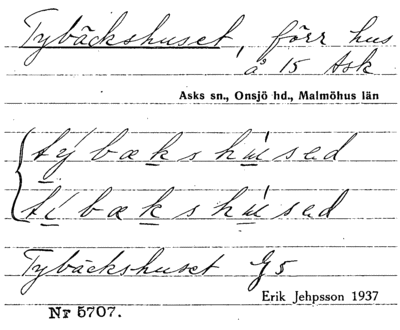 Tybäckshuset, förr hus
å 15 Ask
Asks sn., Onsjö hd., Malmöhus län
týbækshùsəd
tíbækshùsəd
Tybäckshuset G5
Erik Jehpsson 1937
Nr 5707.